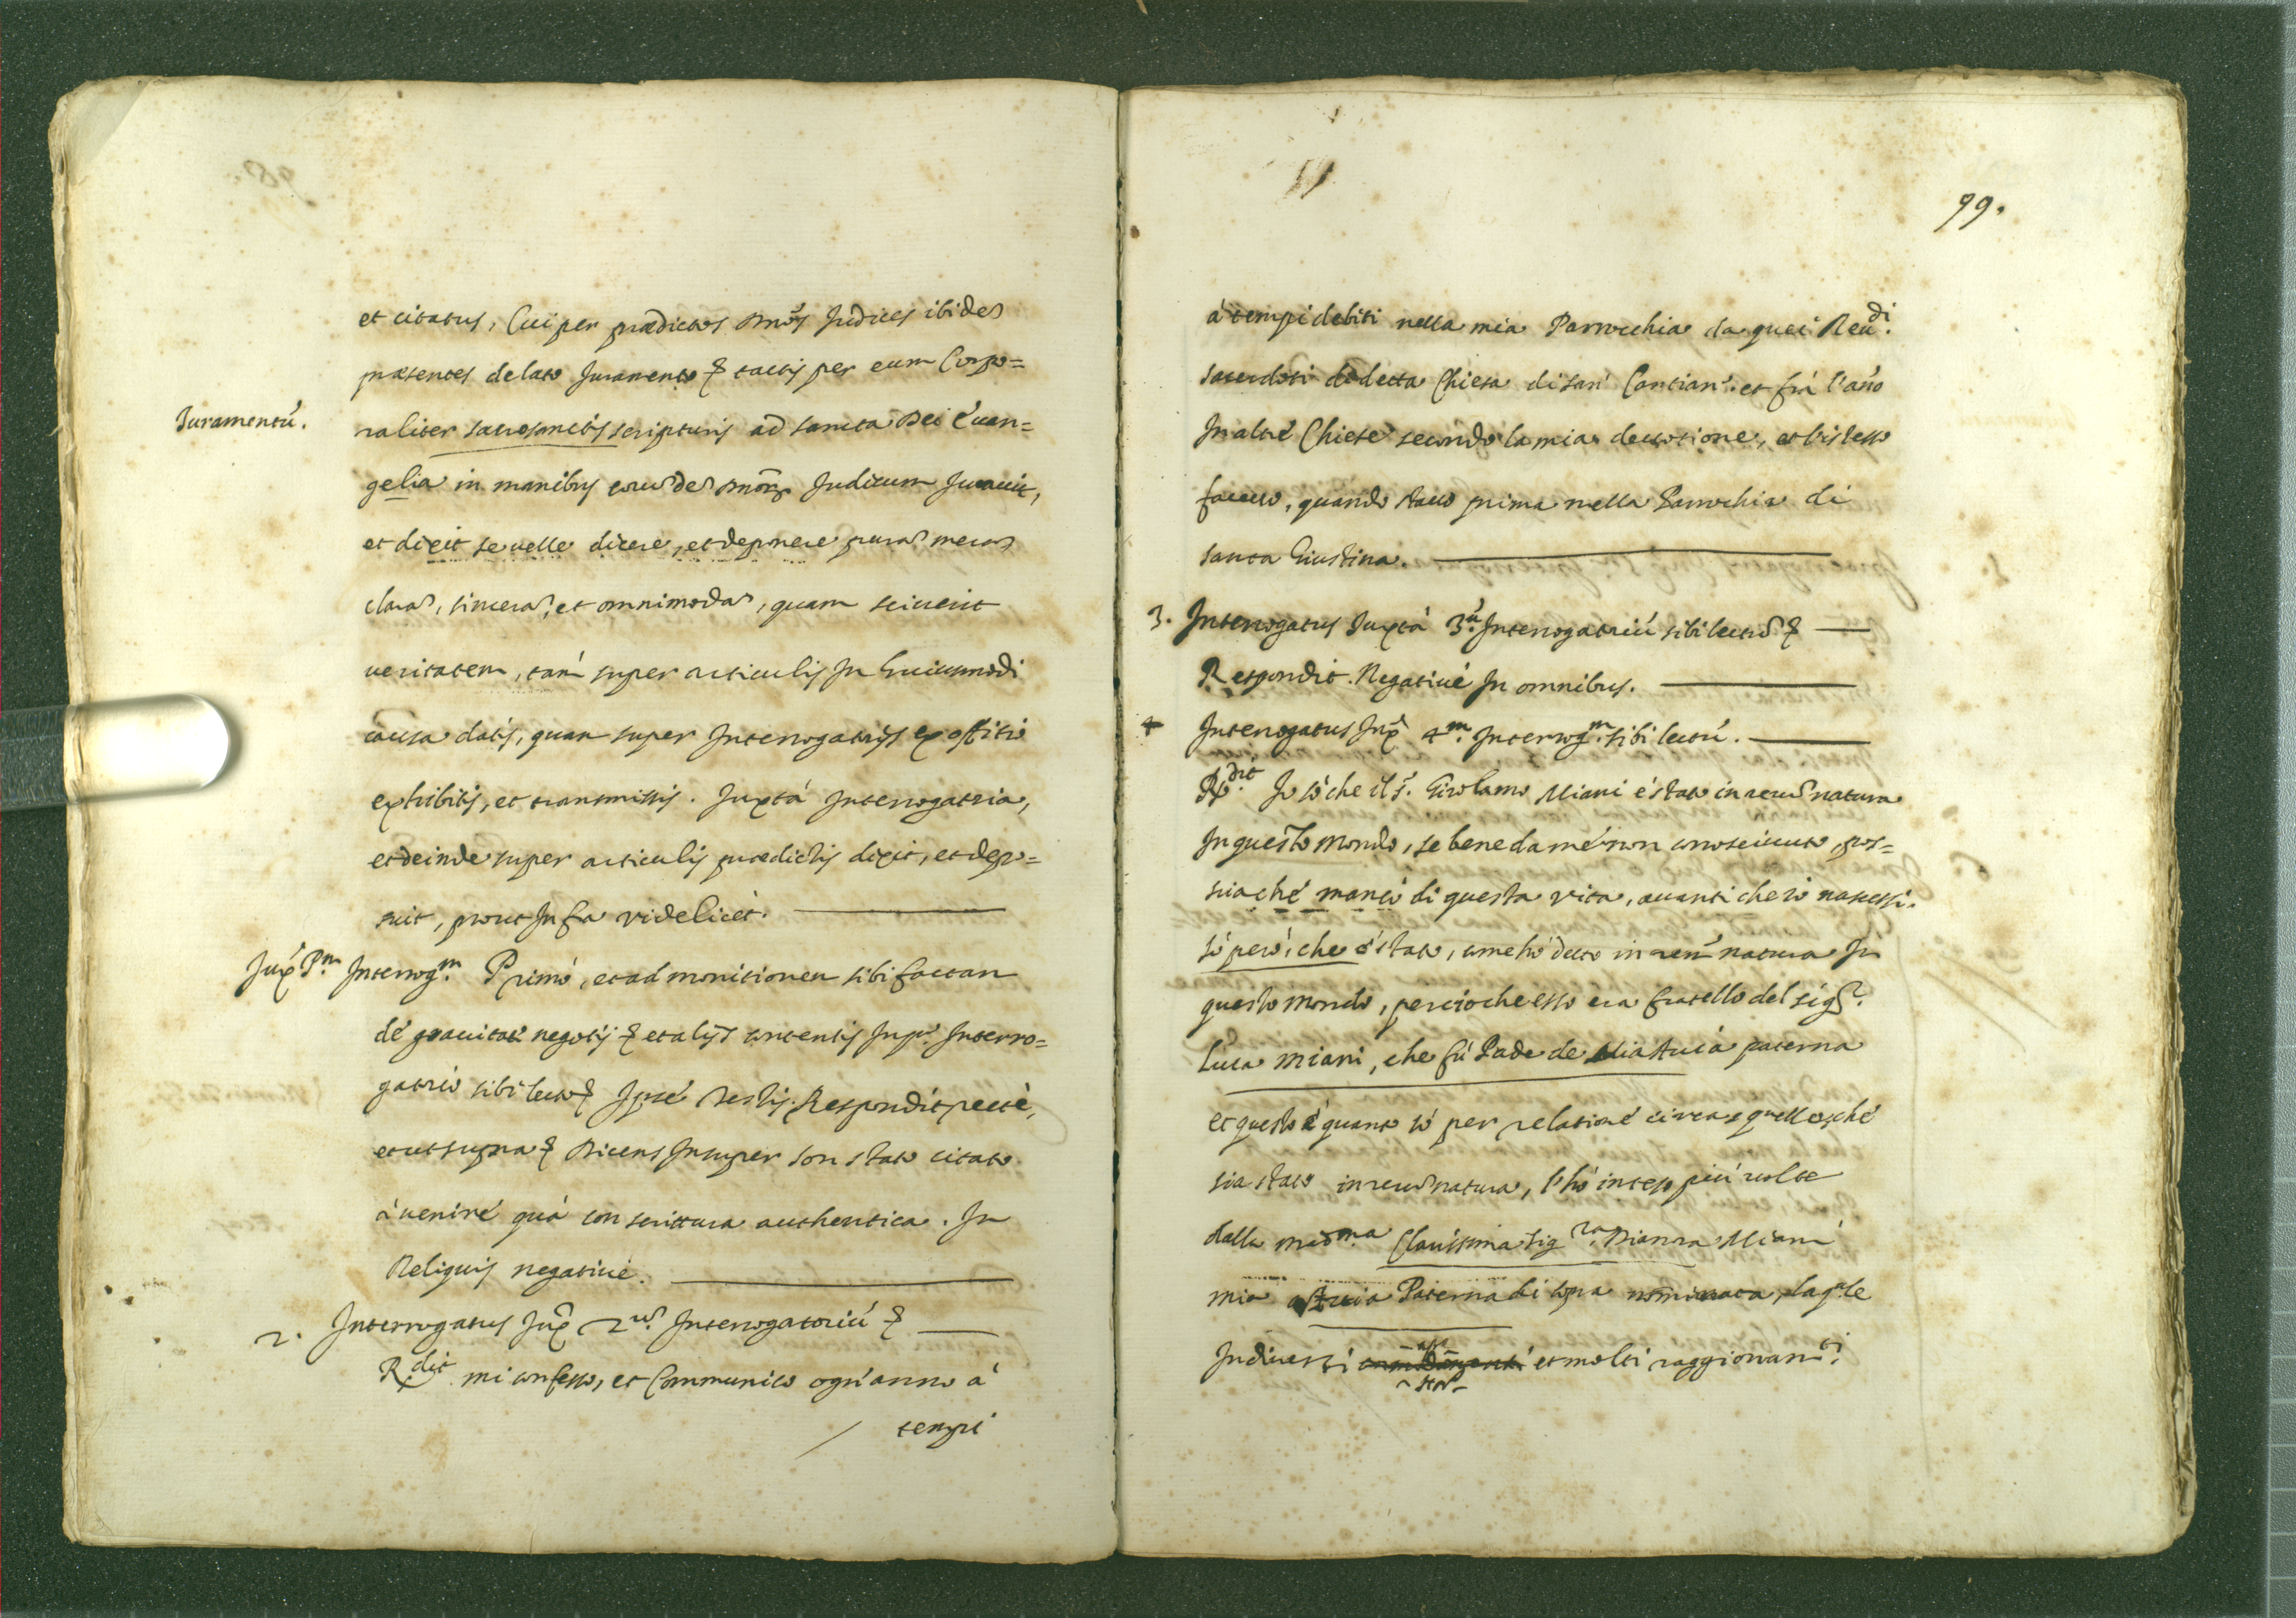 et citatus, Cui per prædictos Dnos Judices ibidem
præsentes delato Juramento & tactis per eum Corpo=
Juramentú.
raliter sacrosanctis scripturis ad sancta Dei Euan=
gelia in manibus eorundem Dnorum Judicum Jurauit,
et dixit se uelle dicere, et deponere puram meram
claram, sinceram, et omnimodam, quam sciuerit
ueritatem, tam super articulis In huiusmodi
causa datis, quam super Interrogatorijs ex offitio
exhibitis, et transmissis. Juxtá Interrogatoria,
et deinde super articulis prædictis dixit, et depo=
suit, prout Infra videlicet.
Juxᵃ Pᵐ. Interrogᵐ. Primó, et ad monitionem sibi factam
dé grauitaté negotij & et alijs contentis In pᵒ. Interro=
gatorió sibi lecto & Ipsé Testis. Respondit recté,
et ut supra & Dicens Insuper son stato citato
á veniré quá con scrittura authentica. In
Reliquis negatiué.
2. Interrogatus Juxᵃ 2ᵘᵐ. Interrogatoriú &
R.ᵈⁱᵗ mi confesso, et Communico ogn'anno á
tempi
99.
á tempi debiti nella mia Parrocchia da quei Reuᵈⁱ.
sacerdoti dé detta Chiesa di san Cantianᵒ. et frá l'anno
In altré Chiese secondo la mia deuotione, et l'istesso
faceuo, quando stauo prima nella Parrochia di
santa Giustina.
3. Interrogatus Juxtá 3ᵘ. Interrogatoriú sibi lectum &
Respondit. Negatiué In omnibus.
4 Interrogatus Juxᵃ 4ᵐ. Interrogᵐ. sibi lectú.
R.ᵈⁱᵗ Io só che il sʳ. Girolamo Miani é stato in rerum natura
In questo mondo, se bene da mé non conosciuto, pos=
sia ché mancó di questa vita, auanti che ió nascessi.
só peró, che é stato, come hó detto in rerum natura In
questo mondo, percioche esso era fratello del sigʳ.
Luca Miani, che fú Padre de Mia Auia paterna
et questo é quanto só per relationé circa quello, ché
sia stato in rerum natura, l'hó inteso piú uolte
dalla medᵐᵃ Clarissima sigʳᵃ. Dianora Miani
mia Auia Paterna di sopra nominata, la qle
In diuersi et molti raggionamᵗⁱ.